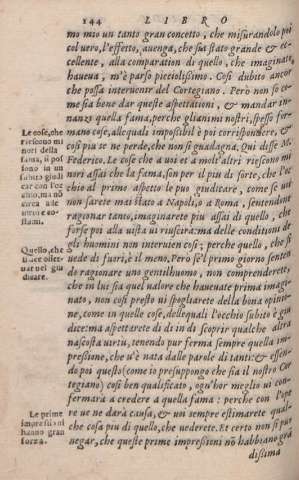 144 LIBRO
mo mio un tanto gran concetto, che misurandolo poi
col uero, l'effetto, auenga, che sia stato grande & ec-
cellente, alla comparation di quello, che imaginato
haueua, m'è parso picciolissimo. Così dubito ancor
che possa interuenir del Cortegiano. Però non so co-
me sia bene dar queste aspettationi, & mandar in-
nanzi quella fama, perche gli animi nostri, spesso for-
mano cose, alle quali impossibil è poi corrispondere, &
così piu se ne perde, che non si guadagna. Qui disse M.
Federico. Le cose che a uoi et a molt'altri riescono mi
nori assai che la fama, son per il piu di sorte, che l'oc
chio al primo aspetto le puo giudicare, come se uoi
non sarete mai stato a Napoli, o a Roma, sentendone
ragionar tanto, imaginarete piu assai di quello, che
forse poi alla uista ui riuscirà: ma delle conditioni de
gli huomini non interuien così; perche quello, che si
uede di fuori, è il meno. Però se'l primo giorno senten
do ragionare uno gentilhuomo, non comprenderete,
che in lui sia quel ualore che haueuate prima imagi-
nato, non così presto ui spogliarete della bona opinio-
ne, come in quelle cose, delle quali l'occhio subito è giu
dice: ma aspettarete di dì in dì scoprir qualche altra
nascosta uirtù, tenendo pur ferma sempre quella im-
pressione, che u'è nata dalle parole di tanti: & essen-
do poi questo (come io presuppongo che sia il nostro Cor
tegiano) così ben qualificato, ogn'hor meglio ui con-
fermarà a credere a quella fama: perche con l'ope
re ue ne darà causa, & uoi sempre estimarete qual-
che cosa piu di quello, che uederete. Et certo non si puo
negar, che queste prime impressioni nõ habbiano grã
dissima
Le cose, che
riescono mi
nori della
fama, si pos
sono in un
subito giudi
car con l'oc
chio, ma nõ
circa alle
uirtù e co-
stumi.
Quello, che
si uede
uar nei giu
dicare.
Le prime
impressioni
hanno gran
forza.